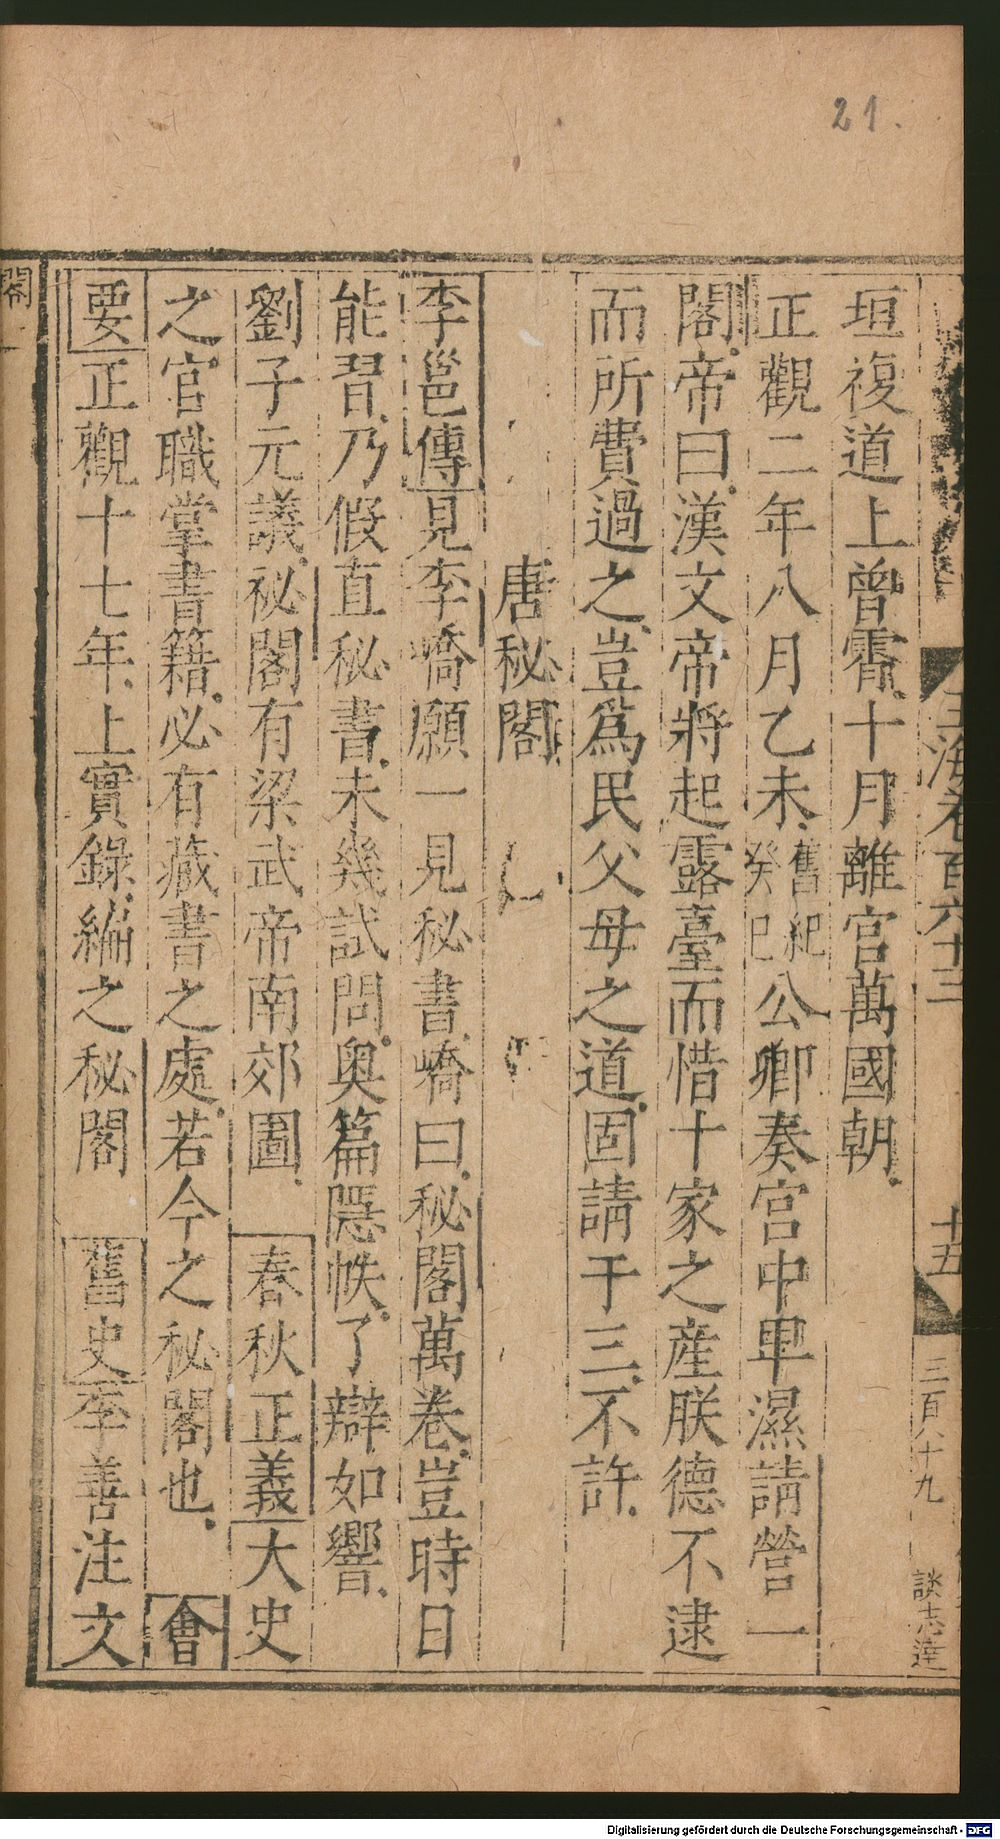 21.
玉海卷百六十三
十五
三百八十九
談志達
垣複道上曾霄十月離宮萬國朝
正觀二年八月乙未舊紀癸巳公卿奏宮中卑濕請營一
閣帝曰漢文帝將起露臺而惜十家之產朕德不逮
而所費過之豈爲民父母之道固請于三不許
唐秘閣
李邕傳見李嶠願一見秘書嶠曰秘閣萬卷豈時日
能習乃假直秘書未幾試問奧篇隱帙了辯如響
劉子元議祕閣有梁武帝南郊圖 春秋正義大史
之官職掌書籍必有藏書之處若今之秘閣也 會
要正觀十七年上實錄編之秘閣 舊史李善注文
閣
Digitalisierung gefördert durch die Deutsche Forschungsgemeinschaft - DFG